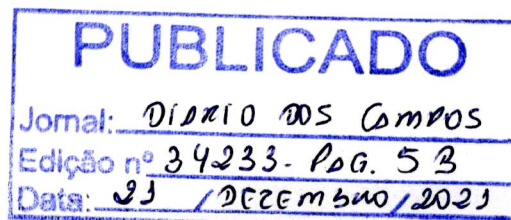 PUBLICADO
Jornal: DIÁRIO DOS CAMPOS
Edição nº 34233- PÁG. 5 B
Data: 21 / DEZEMBRO / 2021